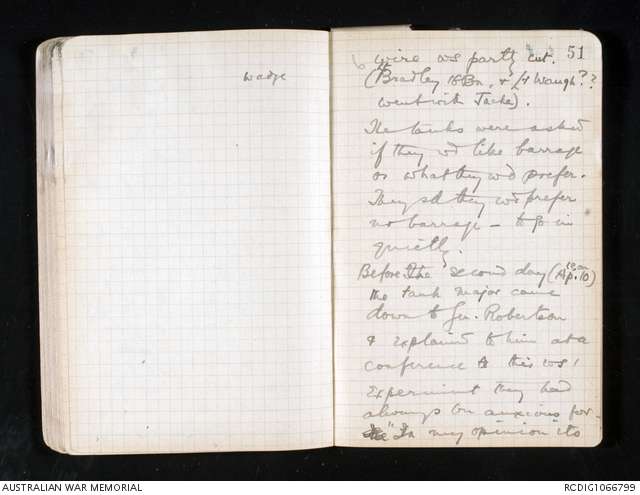 wadge
51
wire ws partly cut.
(Lt Bradley 16 Bn, & Lt Waugh??
went with Jacka).
The tanks were asked
if they wd like barrage
or what they wd prefer.
They sd they wd prefer
no barrage - to go in
quietly.
Before the second day (Ap. 10)
the tank major came
down to Gen. Robertson
& explained to him at a
conference tt this ws 1
experiment they had
always bn anxious for.
"In my opinion its
AUSTRALIAN WAR MEMORIAL
RCDIG1066799